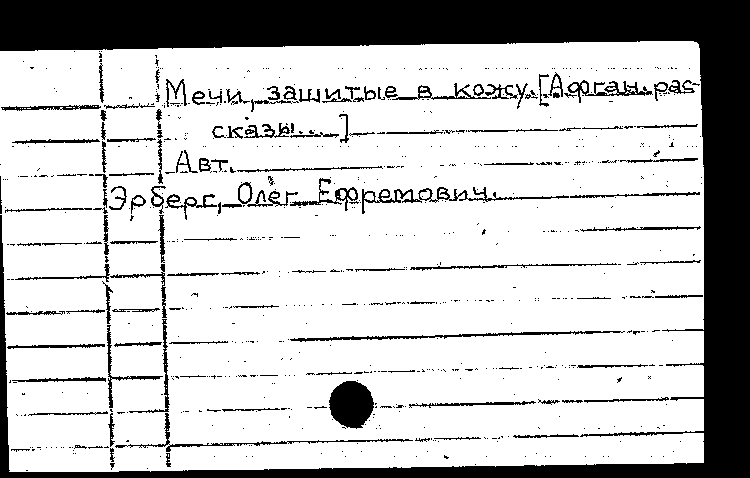 Мечи, зашитые в кожу.[Афган.рас-
сказы...]
Авт.
Эрберг, Олег Ефремович.